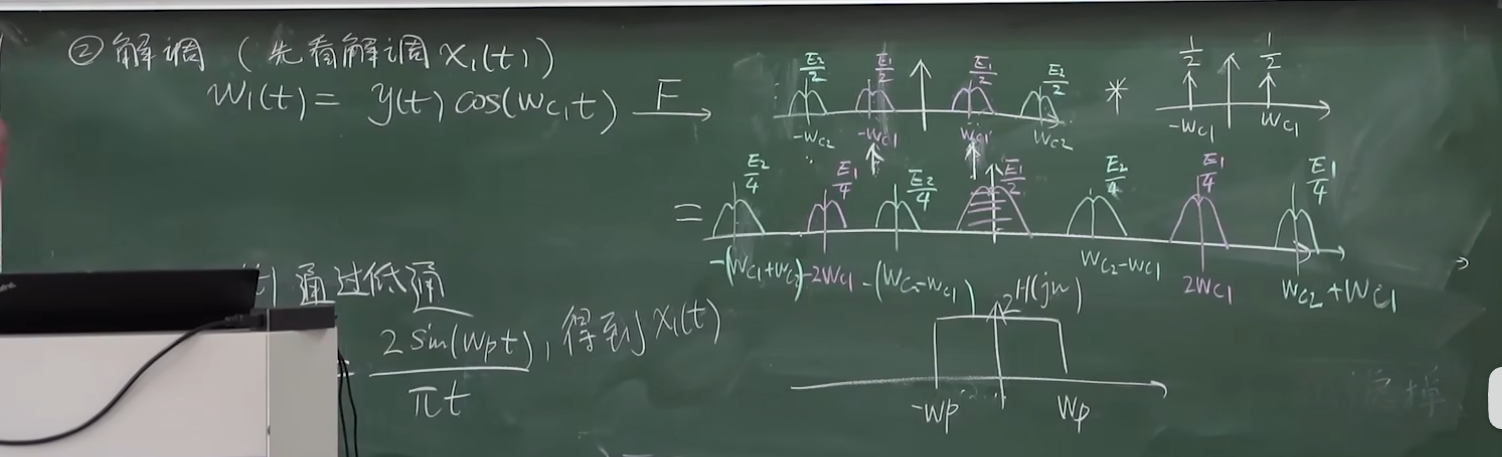 ② 解调 (先看解调 x₁(t))
w₁(t) = y(t) cos(w_c₁t) F→
E₂/2 E₁/2 E₁/2 E₂/2 * 1/2 1/2
-w_c₂ -w_c₁ w_c₁ w_c₂ -w_c₁ w_c₁
= E₂/4 E₁/4 E₂/4 E₁/2 E₂/4 E₁/4 E₁/4
-(w_c₁+w_c₂) -2w_c₁ -(w_c-w_c₁) w_c₂-w_c₁ 2w_c₁ w_c₂+w_c₁
t) 通过低通
2 sin(w_p t) / πt, 得到 x₁(t)
2 H(jw)
-w_p w_p
滤掉